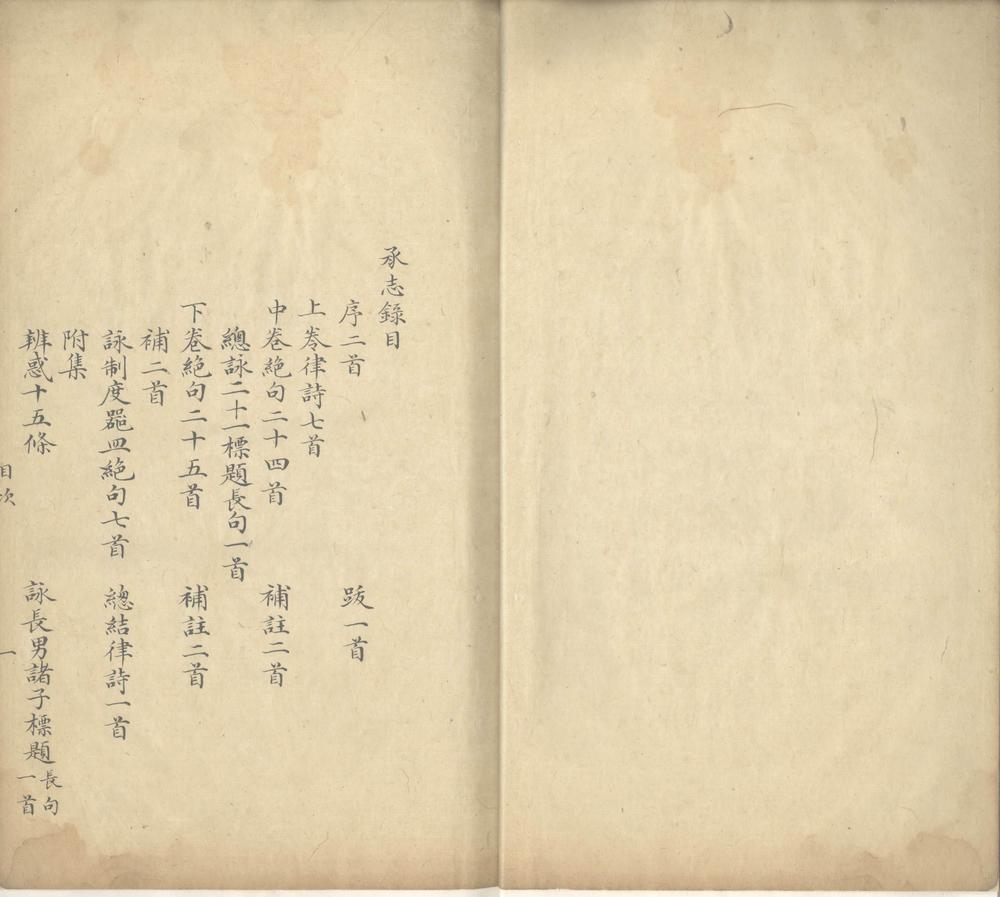 承志錄目
序二首　跋一首
上卷律詩七首
中卷絕句二十四首　補註二首
總詠二十一標題長句一首
下卷絕句二十五首　補註二首
補二首
詠制度器皿絕句七首　總結律詩一首
附集
辨惑十五條　詠長男諸子標題長句一首
目次　一